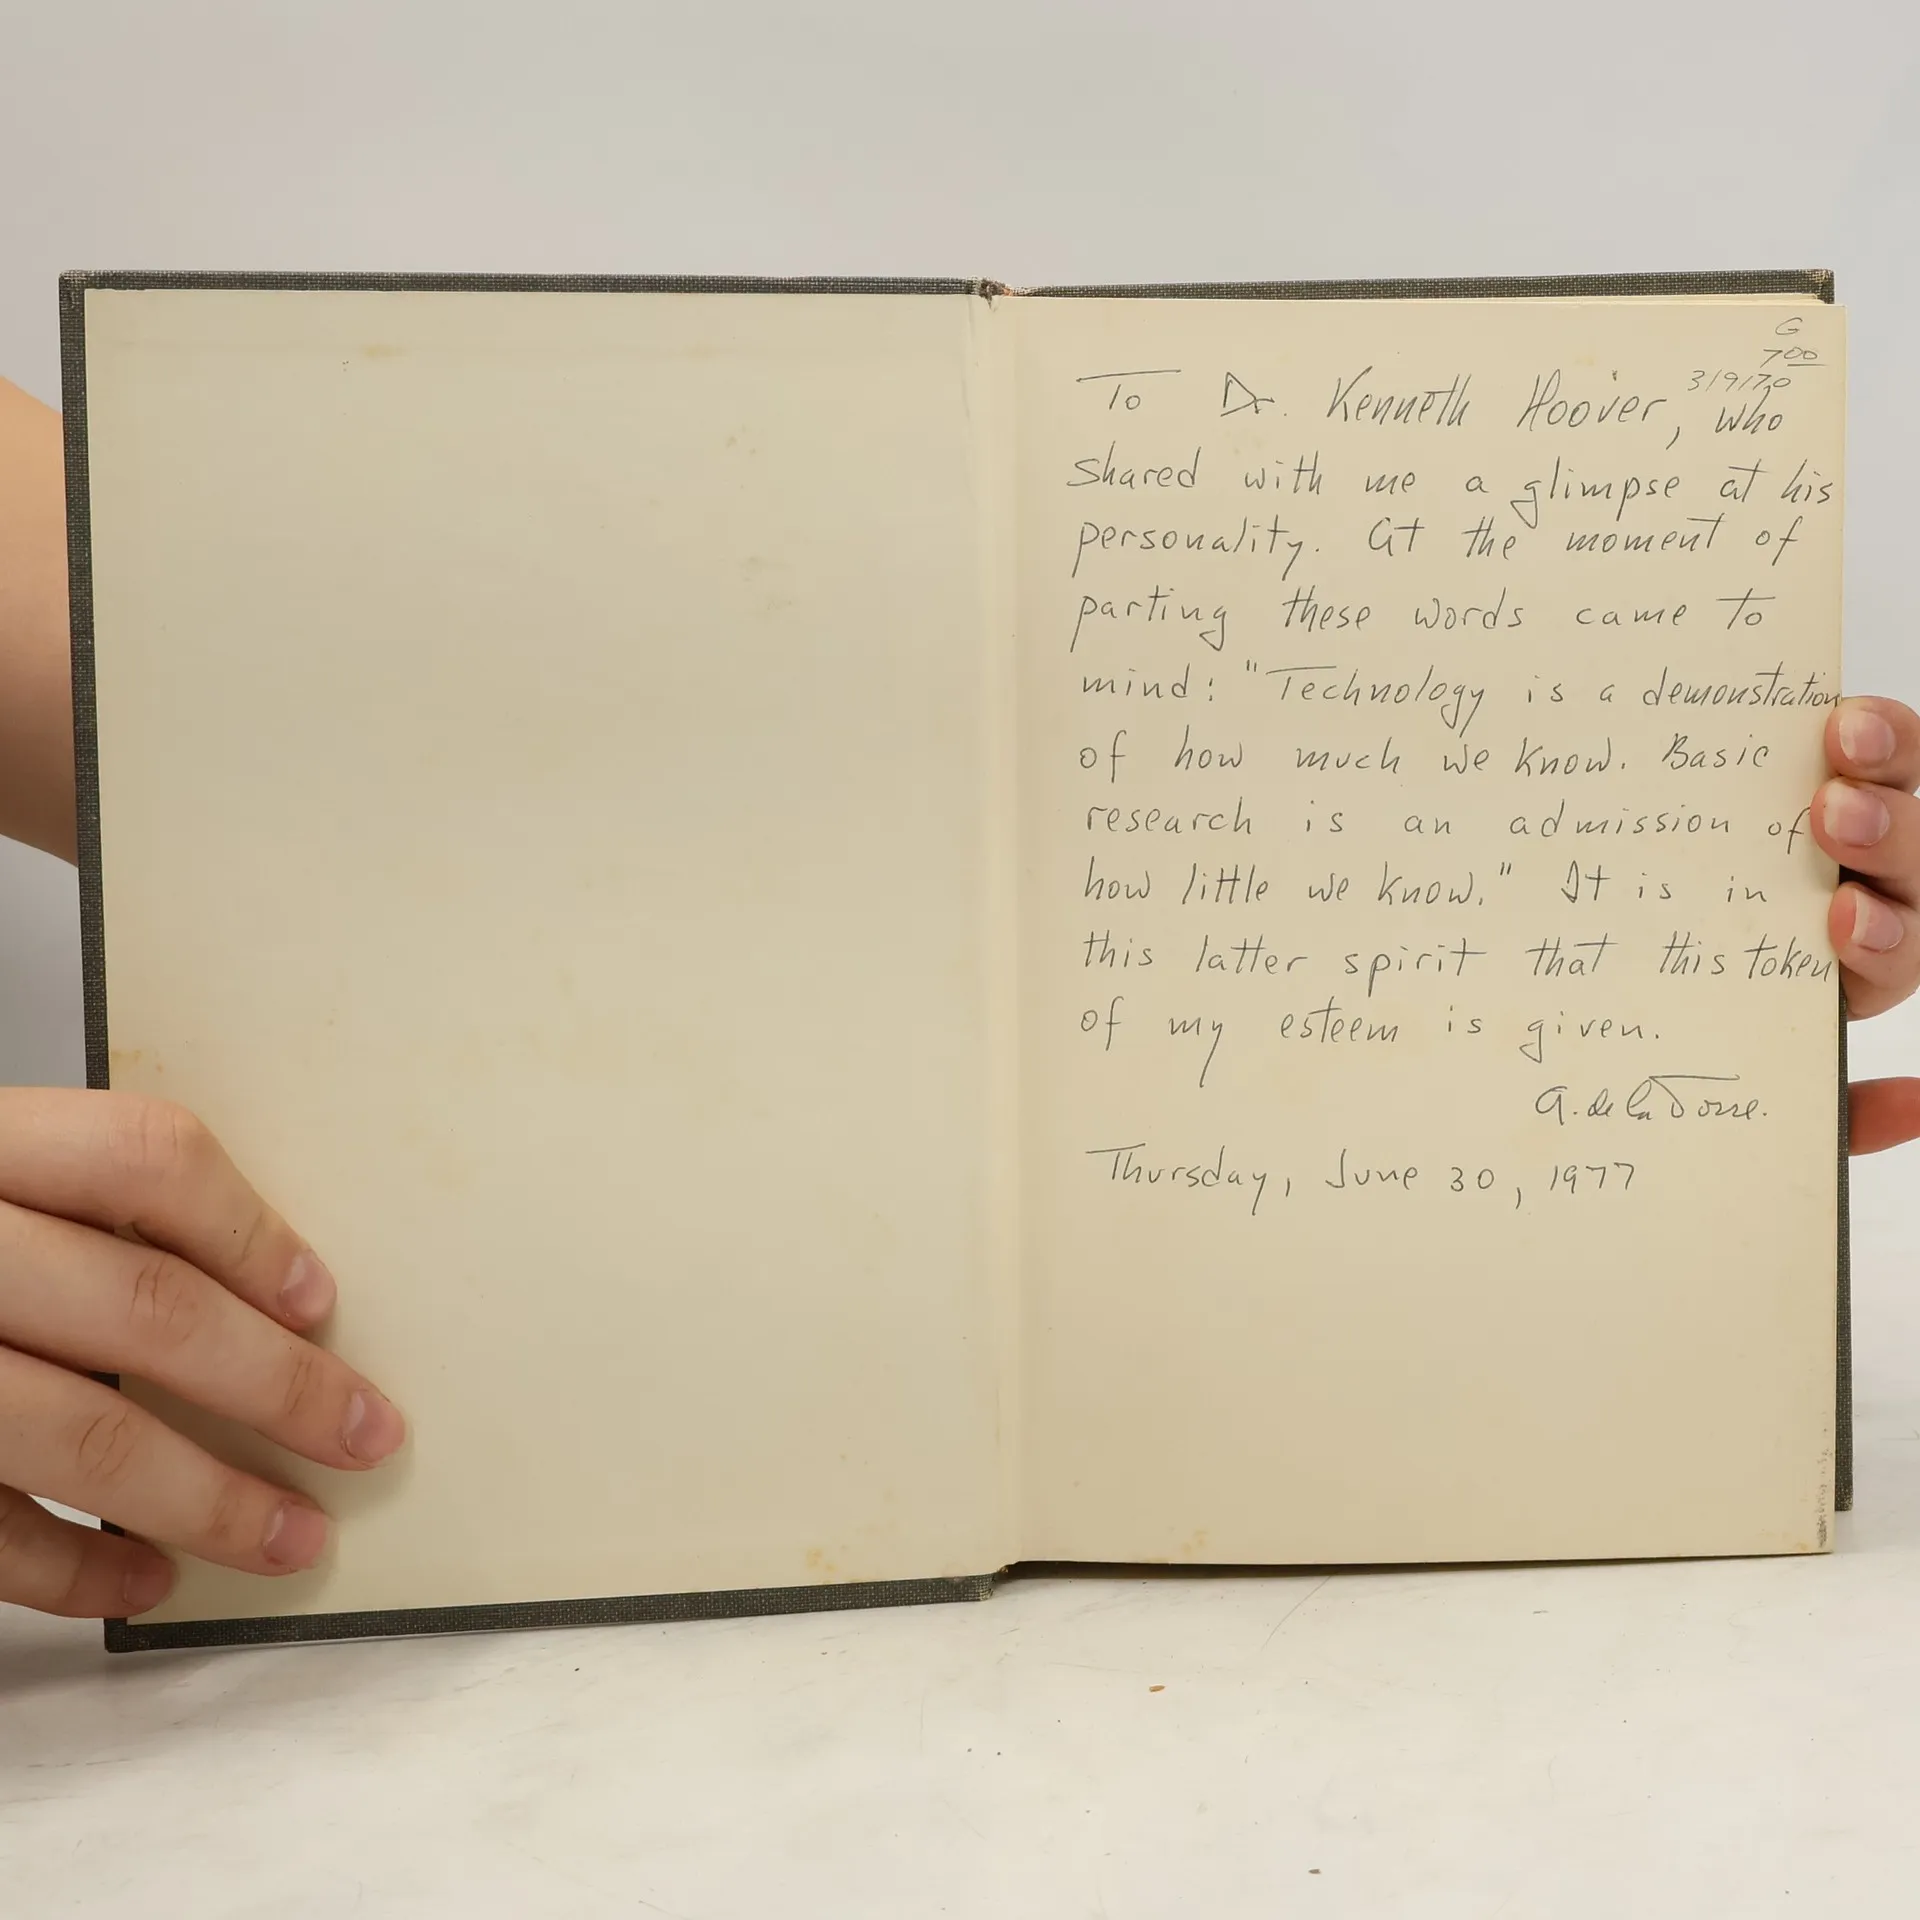 G
700
3/9/70
To Dr. Kenneth Hoover, who
shared with me a glimpse at his
personality. At the moment of
parting these words came to
mind: "Technology is a demonstration
of how much we know. Basic
research is an admission of
how little we know." It is in
this latter spirit that this token
of my esteem is given.
A. de la Torre.
Thursday, June 30, 1977